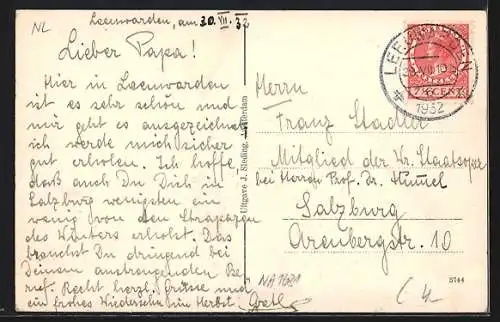 NL
Leeuwarden, am 30. VII. 32
Lieber Papa!
Hier in Leeuwarden
ist es sehr schön und
mir geht es ausgezeichnet
ich werde mich sicher
gut erholen. Ich hoffe
daß auch Du Dich in
Salzburg wenigsten ein
wenig von den Strapazen
des Winters erholst. Das
brauchst Du dringend bei
Deinem anstrengenden Be
ruf. Recht herzl. Grüsse und
ein frohes Wiedersehn im Herbst.
Gretl
Uitgave J. Sleding, Amsterdam
LEEUWARDEN
1932
7½ CENT
Herrn
Franz Stadler
Mitglied der Wr. Staatsoper
bei Herrn Prof. Dr. Hummel
Salzburg
Arenbergstr. 10
NA1621
5744